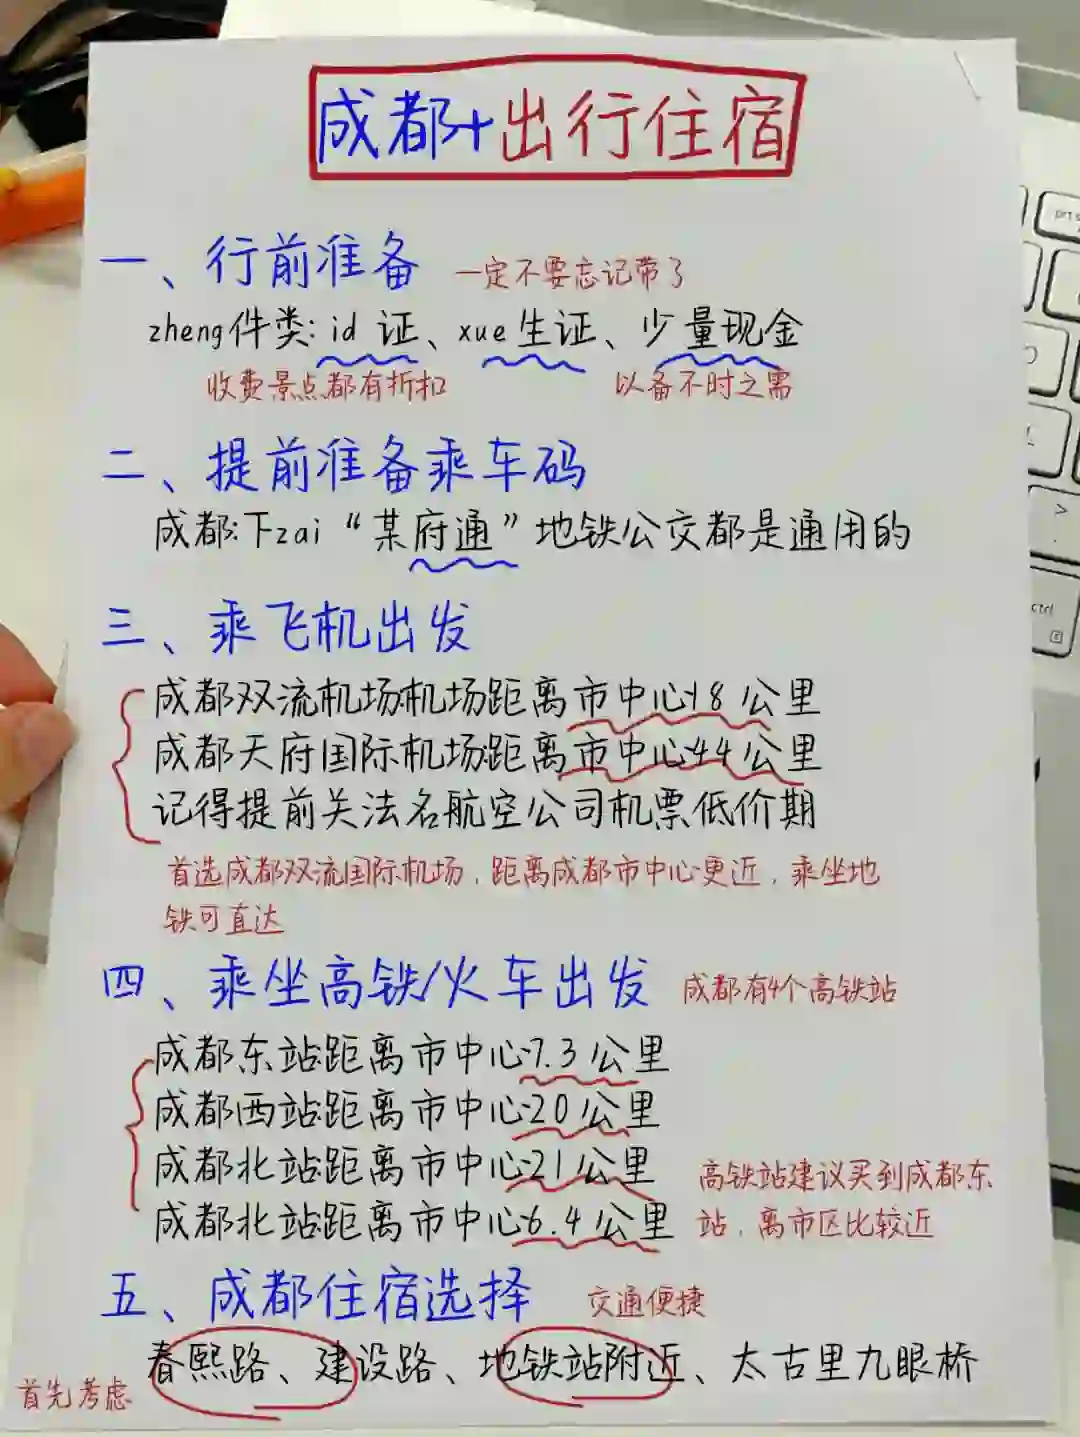 成都+出行住宿
一、行前准备 一定不要忘记带了
zheng件类: id 证、xue生证、少量现金
收费景点都有折扣 以备不时之需
二、提前准备乘车码
成都:下zai“某府通”地铁公交都是通用的
三、乘飞机出发
成都双流机场:机场距离市中心18公里
成都天府国际机场:距离市中心44公里
记得提前关法名航空公司机票低价期
首选成都双流国际机场,距离成都市中心更近,乘坐地
铁可直达
四、乘坐高铁/火车出发 成都有4个高铁站
成都东站距离市中心7.3公里
成都西站距离市中心20公里
成都北站距离市中心21公里
高铁站建议买到成都东
成都北站距离市中心6.4公里
站,离市区比较近
五、成都住宿选择 交通便捷
春熙路、建设路、地铁站附近、太古里九眼桥
首先考虑
prt s
ctrl